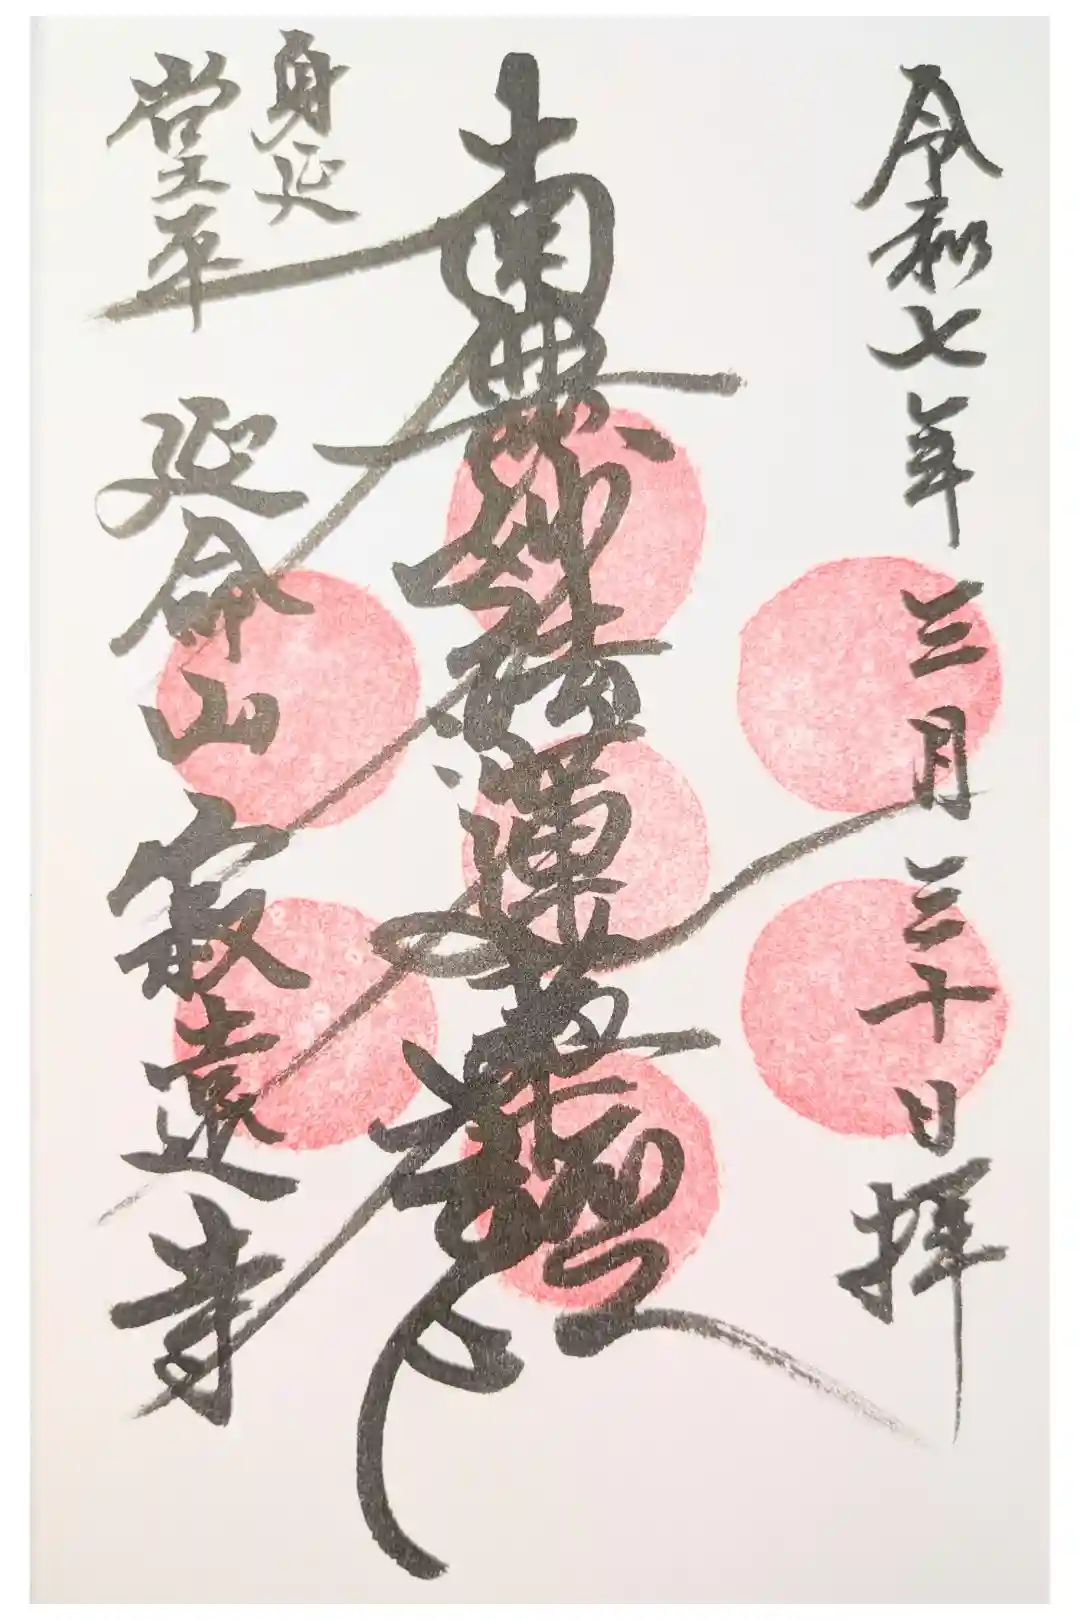 令和七年三月三十日拝
南無妙法蓮華経
身延
堂平
延命山寂遠寺